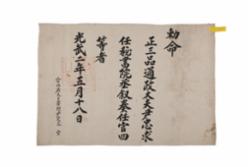 勅命
正三品通政大夫尹忠求
任秘書院丞叙奏任官四
等者
光武二年五月十八日